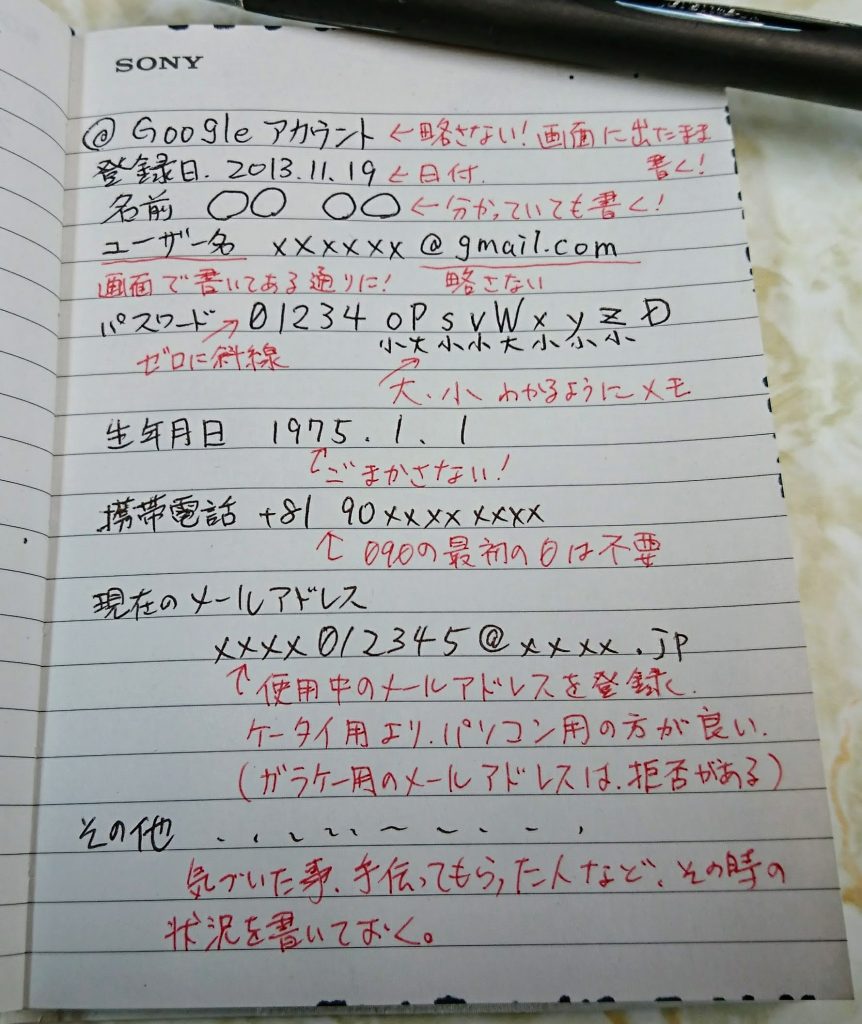 SONY
@ Google アカウント ←略さない!画面に出たまま書く!
登録日. 2013.11.19 ←日付.
名前 〇〇 〇〇 ←分かっていても書く!
ユーザー名 xxxxxx@gmail.com
画面で書いてある通りに! 略さない
パスワード 01234 oPsvWxyz0
小大小小大小小小
ゼロに斜線
大、小 わかるようにメモ
生年月日 1975.1.1
↑ごまかさない!
携帯電話 +81 90xxxxxxxx
↑090の最初の0は不要
現在のメールアドレス
xxxx012345@xxxx.jp
↑使用中のメールアドレスを登録く.
ケータイ用より.パソコン用の方が良い.
(ガラケー用のメールアドレスは、拒否がある)
その他
気づいた事、手伝ってもらった人など、その時の
状況を書いておく。